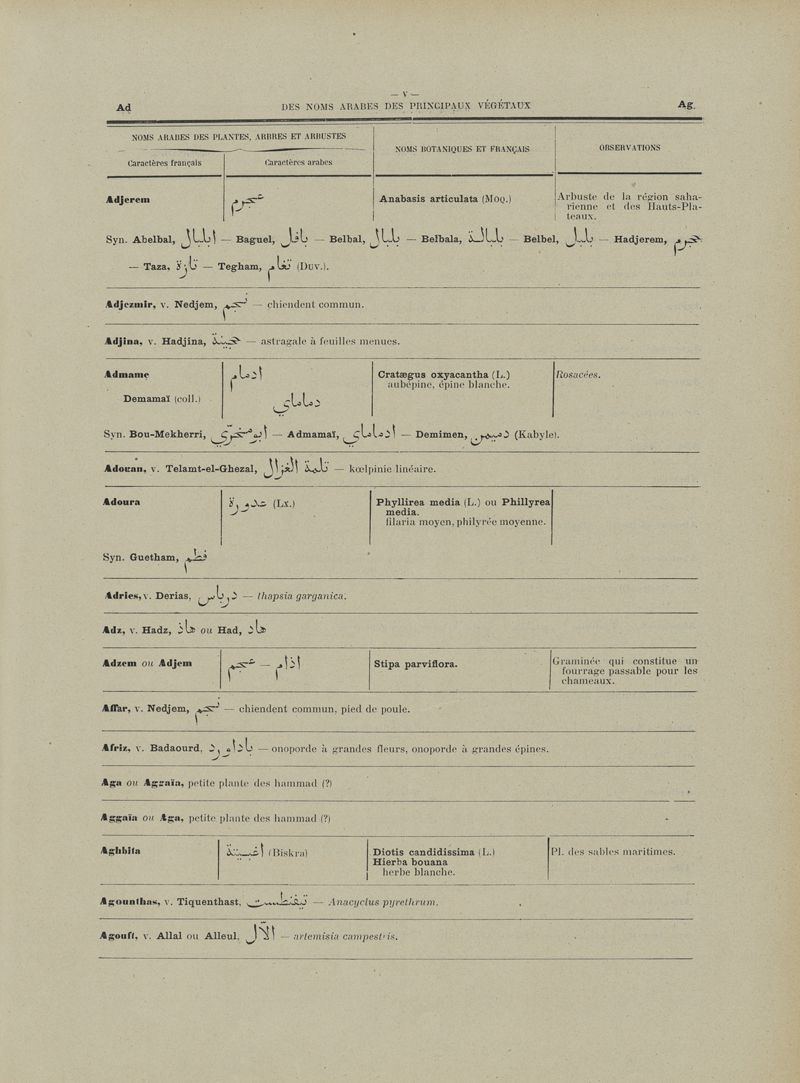 — V —
Ad DES NOMS ARABES DES PRINCIPAUX VÉGÉTAUX Ag.
NOMS ARABES DES PLANTES, ARBRES ET ARBUSTES
Caractères français
Caractères arabes
NOMS BOTANIQUES ET FRANÇAIS
OBSERVATIONS
Adjerem
عجرم
Anabasis articulata (MOQ.)
Arbuste de la région saha-
rienne et des Hauts-Pla-
teaux.
Syn. Abelbal, — Baguel, — Belbal, — Belbala, — Belbel, — Hadjerem,
— Taza, تازة — Tegham, (DUV.).
Adjezmir, v. Nedjem, نجم — chiendent commun.
Adjina, v. Hadjina, — astragale à feuilles menues.
Admame
ادمام
Cratægus oxyacantha (L.)
aubépine, épine blanche.
Rosacées.
Demamaï (coll.)
دماماي
Syn. Bou-Mekherri, — Admamaï, ادماماي — Demimen, (Kabyle).
Adouan, v. Telamt-el-Ghezal, — kœlpinie linéaire.
Adoura
(LX.)
Phyllirea media (L.) ou Phillyrea
media.
filaria moyen, philyrée moyenne.
Syn. Guetham,
Adries, v. Derias, درياس — thapsia garganica.
Adz, v. Hadz, هاذ ou Had, هاد
Adzem ou Adjem
عجم — اذام
Stipa parviflora.
Graminée qui constitue un
fourrage passable pour les
chameaux.
Affar, v. Nedjem, نجم — chiendent commun, pied de poule.
Afriz, v. Badaourd, — onoporde à grandes fleurs, onoporde à grandes épines.
Aga ou Aggaïa, petite plante des hammad (?)
Aggaïa ou Aga, petite plante des hammad (?)
Aghbita
(Biskra)
Diotis candidissima (L.)
Hierba bouana
herbe blanche.
Pl. des sables maritimes.
Agounthas, v. Tiquenthast, — Anacyclus pyrethrum.
Agouft, v. Allal ou Alleul, — artemisia campestris.